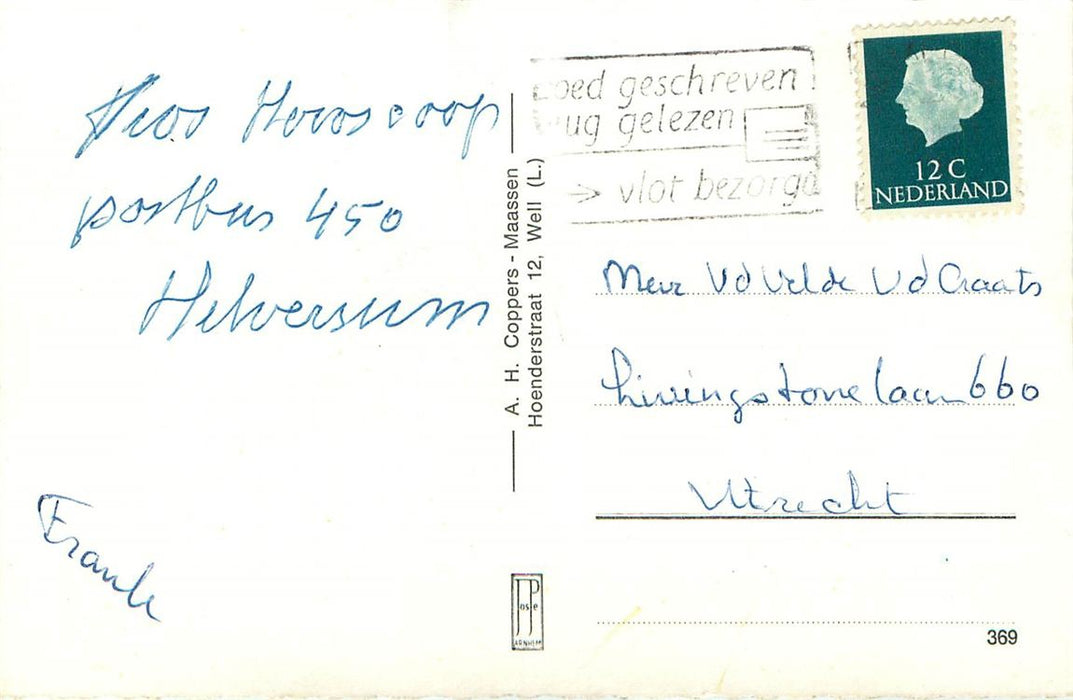 Horoscoop
postbus 450
Helversum
Frank
A. H. Coppers - Maassen
Hoenderstraat 12, Well (L.)
oed geschreven
ug gelezen
vlot bezorgd
12 C
NEDERLAND
Vd Velde Vd Craats
Livingstonelaan 660
Utrecht
ARNHEM
369